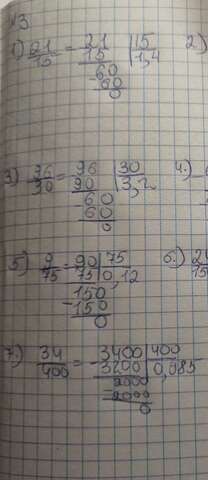 №3
1) 21/15 = 21 | 15 2)
15 | 1,4
-60
60
0
3) 96/30 = 96 | 30 4.)
90 | 3,2
-60
60
0
5) 9/75 = 90 | 75 6.)
75 | 0,12
150
-150
0
7.) 34/400 = -3400 | 400
3200 | 0,085
2000
-2000
0